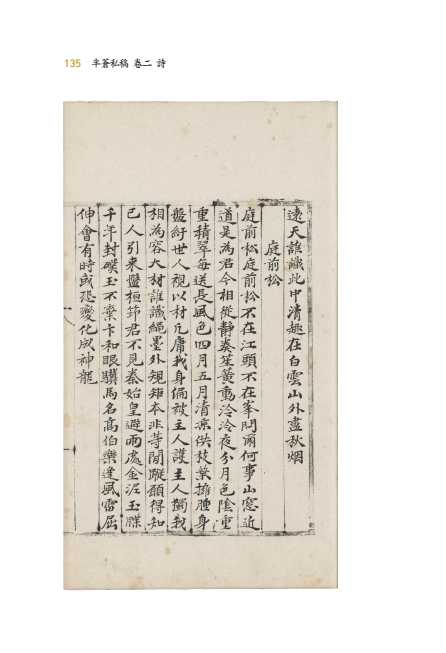 135 半蒼私稿 卷二 詩
遠天誰識此中清趣在白雲山外盡秋烟
庭前松
庭前松庭前松不在江頭不在峯問爾何事山窓近
道是為君今相從靜奏笙簧動泠泠夜分月色陰重
重積翠每送長風色四月五月清凉供枝葉擁腫身
盤紆世人視以材凡庸我身偏被主人護主人獨我
相為容大材誰識繩墨外規矩本非等閒蹤願得知
己人引来盤桓節君不見秦始皇避雨處金泥玉牒
千年封璞玉不棄卞和眼驥馬名高伯樂逢風雷屈
伸會有時或恐變化成神龍